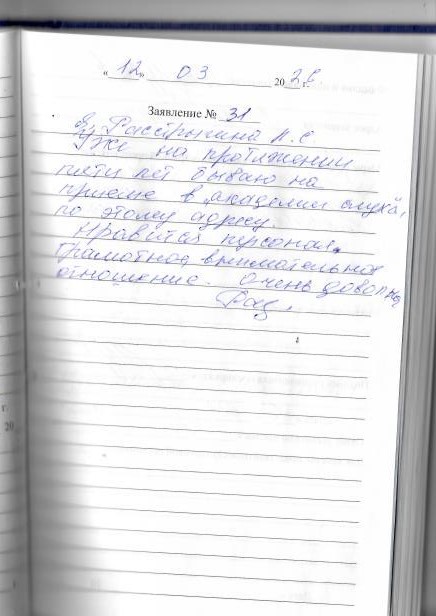 « 12 » 03 20 2 г.
Заявление № 31
Я, Расстрыгина Л. С
Уже на протяжении
пяти лет бываю на
приеме в "академии слуха",
по этому адресу.
Нравится персонал,
грамотное, внимательное
отношение. Очень довольна
г.
20